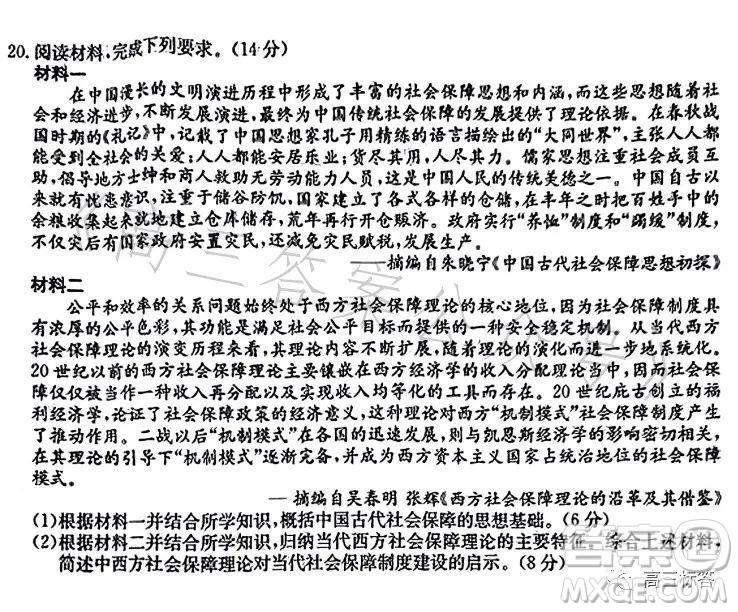 20. 阅读材料,完成下列要求。(14分)
材料一
在中国漫长的文明演进历程中形成了丰富的社会保障思想和内涵,而这些思想随着社
会和经济进步,不断发展演进,最终为中国传统社会保障的发展提供了理论依据。在春秋战
国时期的《礼记》中,记载了中国思想家孔子用精练的语言描绘出的“大同世界”,主张人人都
能受到全社会的关爱;人人都能安居乐业;货尽其用,人尽其力。儒家思想注重社会成员互
助,倡导地方士绅和商人救助无劳动能力人员,这是中国人民的传统美德之一。中国自古以
来就有忧患意识,注重于储谷防饥,国家建立了各式各样的仓储,在丰年之时把百姓手中的
余粮收集起来就地建立仓库储存,荒年再行开仓赈济。政府实行“养恤”制度和“蠲缓”制度,
不仅灾后有国家政府安置灾民,还减免灾民赋税,发展生产。
——摘编自朱晓宁《中国古代社会保障思想初探》
材料二
公平和效率的关系问题始终处于西方社会保障理论的核心地位,因为社会保障制度具
有浓厚的公平色彩,其功能是满足社会公平目标而提供的一种安全稳定机制。从当代西方
社会保障理论的演变历程来看,其理论内容不断扩展,随着理论的演化而进一步地系统化。
20世纪以前的西方社会保障理论主要镶嵌在西方经济学的收入分配理论当中,因而社会保
障仅仅被当作一种收入再分配以及实现收入均等化的工具而存在。20世纪庇古创立的福
利经济学,论证了社会保障政策的经济意义,这种理论对西方“机制模式”社会保障制度产生
了推动作用。二战以后“机制模式”在各国的迅速发展,则与凯恩斯经济学的影响密切相关,
在其理论的引导下“机制模式”逐渐完备,并成为西方资本主义国家占统治地位的社会保障
模式。
——摘编自吴春明 张辉《西方社会保障理论的沿革及其借鉴》
(1)根据材料一并结合所学知识,概括中国古代社会保障的思想基础。(6分)
(2)根据材料二并结合所学知识,归纳当代西方社会保障理论的主要特征。综合上述材料,
简述中西方社会保障理论对当代社会保障制度建设的启示。(8分)
《高三答案公众号》
MXQE.COM
高三标答